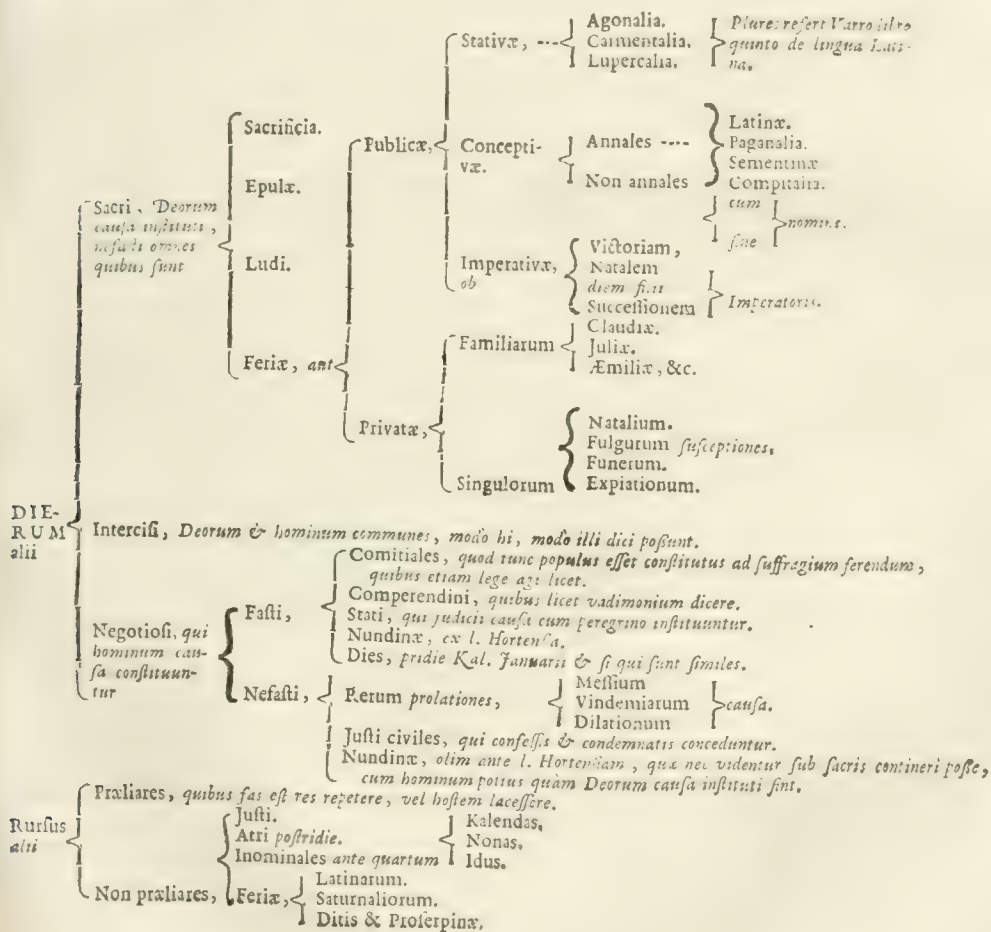 Stativæ,
Agonalia.
Carmentalia.
Lupercalia.
Plura refert Varro libro
quinto de lingua Lati-
na.
Sacri, Deorum
causa instituti,
nefasti omnes
quibus sunt
Sacrificia.
Epulæ.
Ludi.
Feriæ, aut
Publicæ,
Concepti-
væ.
Annales
Non annales
Latinæ.
Paganalia.
Sementinæ
Compitalia.
cum
sine
nomine.
Imperativæ,
ob
Victoriam,
Natalem
diem sive
Successionem
Imperatoris.
Privatæ,
Familiarum
Claudiæ.
Juliæ.
Æmiliæ, &c.
Singulorum
Natalium.
Fulgurum susceptiones,
Funerum.
Expiationum.
DIE-
RUM
alii
Intercisi, Deorum & hominum communes, modo hi, modo illi dici possunt.
Negotiosi, qui
hominum cau-
sa constituun-
tur
Fasti,
Comitiales, quod tunc populus esset constitutus ad suffragium ferendum,
quibus etiam lege agi licet.
Comperendini, quibus licet vadimonium dicere.
Stati, qui judicii causa cum peregrino instituuntur.
Nundinæ, ex l. Hortensa.
Dies, pridie Kal. Januarii & si qui sunt similes.
Nefasti,
Rerum prolationes,
Messium
Vindemiarum
Dilationum
causa.
Justi civiles, qui confessis & condemnatis conceduntur.
Nundinæ, olim ante l. Hortensiam, quæ nec videntur sub sacris contineri posse,
cum hominum potius quàm Deorum causa instituti sint.
Rursus
alii
Præliares, quibus fas est res repetere, vel hostem lacessere.
Non præliares,
Justi.
Atri postridie.
Inominales ante quartum
Kalendas,
Nonas,
Idus.
Feriæ,
Latinarum.
Saturnaliorum.
Ditis & Proserpinæ.